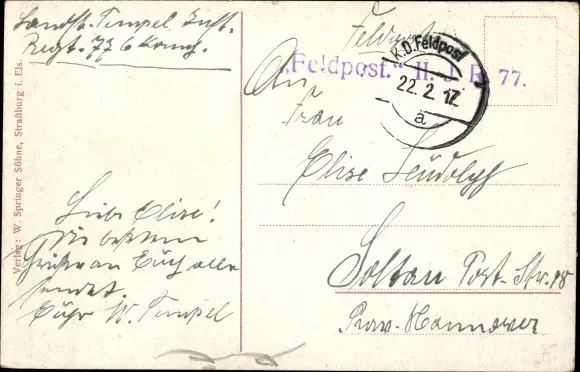 Landst. Tempel Inft.
Regt. 77 6 Komp.
Verlag: W. Springer Söhne, Straßburg i. Els.
Liebe Elise!
Die besten
Grüße an Euch alle
sendet
Euer W. Tempel
Feldpost
K.D. Feldpost
22.2.17
a
"Feldpost." II. J. R. 77.
An
Frau
Elise
Soltau Post-Str. 18
Prov. Hannover